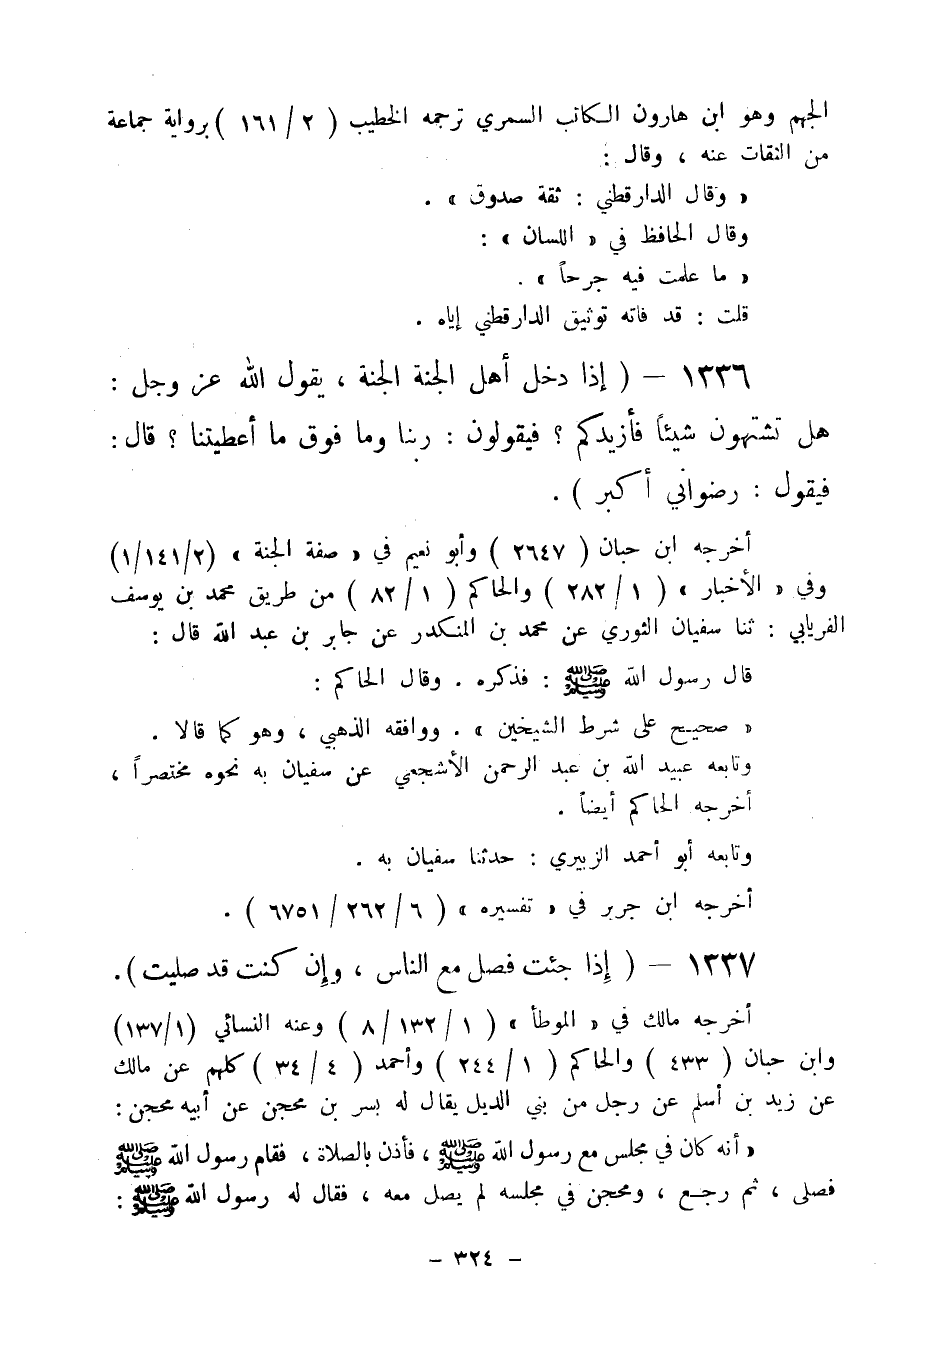 الجهم وهو ابن هارون الكاتب السمري ترجمه الخطيب ( ٢ / ١٦١ ) برواية جماعة
من الثقات عنه ، وقال :
« وقال الدارقطني : ثقة صدوق » .
وقال الحافظ في « اللسان » :
« ما علمت فيه جرحاً » .
قلت : قد فاته توثيق الدارقطني إياه .
١٣٣٦ – ( إذا دخل أهل الجنة الجنة ، يقول الله عز وجل :
هل تشتهون شيئاً فأزيدكم ؟ فيقولون : ربنا وما فوق ما أعطيتنا ؟ قال :
فيقول : رضواني أكبر ) .
أخرجه ابن حبان ( ٢٦٤٧ ) وأبو نعيم في « صفة الجنة » (٢/١٤١/١)
وفي « الأخبار » ( ١ / ٢٨٢ ) والحاكم ( ١ / ٨٢ ) من طريق محمد بن يوسف
الفريابي : ثنا سفيان الثوري عن محمد بن المنكدر عن جابر بن عبد الله قال :
قال رسول الله ﷺ : فذكره . وقال الحاكم :
« صحيح على شرط الشيخين » . ووافقه الذهبي ، وهو كما قالا .
وتابعه عبيد الله بن عبد الرحمن الأشجعي عن سفيان به نحوه مختصراً ،
أخرجه الحاكم أيضاً .
وتابعه أبو أحمد الزبيري : حدثنا سفيان به .
أخرجه ابن جرير في « تفسيره » ( ٦ / ٢٦٢ / ٦٧٥١ ) .
١٣٣٧ – ( إذا جئت فصل مع الناس ، وإن كنت قد صليت ) .
أخرجه مالك في « الموطأ » ( ١ / ١٣٢ / ٨ ) وعنه النسائي (١/١٣٧)
وابن حبان ( ٤٣٣ ) والحاكم ( ١ / ٢٤٤ ) وأحمد ( ٤ / ٣٤ ) كلهم عن مالك
عن زيد بن أسلم عن رجل من بني الديل يقال له بسر بن محجن عن أبيه محجن :
« أنه كان في مجلس مع رسول الله ﷺ ، فأذن بالصلاة ، فقام رسول الله ﷺ
فصلى ، ثم رجع ، ومحجن في مجلسه لم يصل معه ، فقال له رسول الله ﷺ :
– ٣٢٤ –